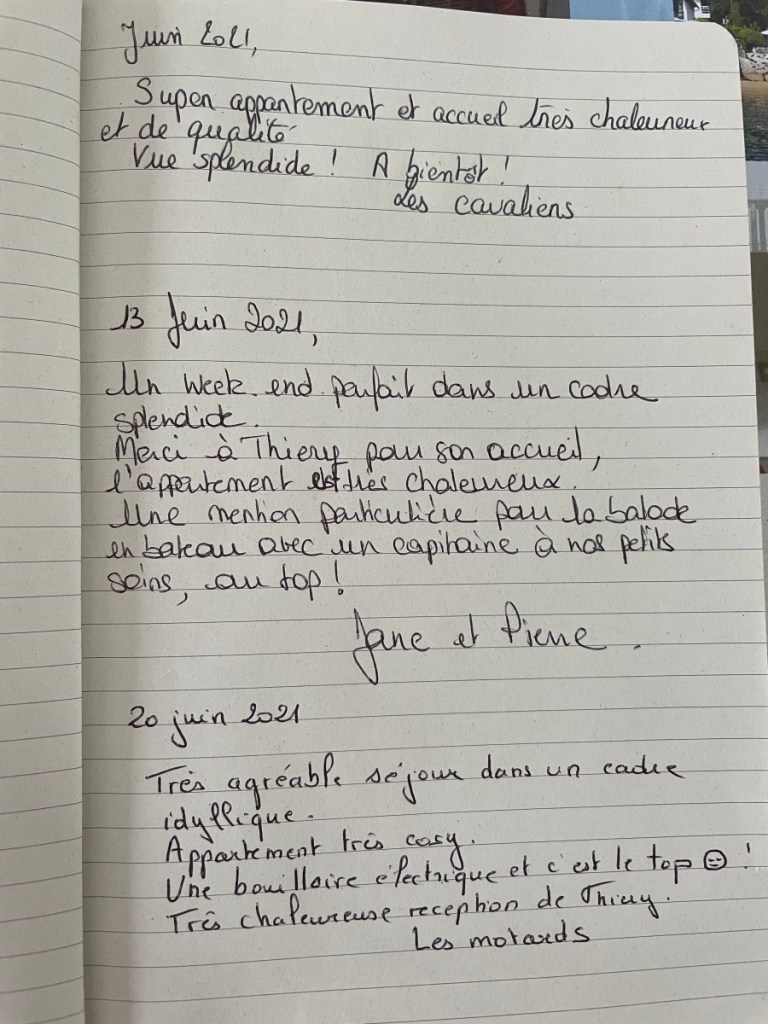 Juin 2021,
Super appartement et accueil très chaleureux
et de qualité
Vue splendide ! A bientôt !
Les cavaliers
13 Juin 2021,
Un week end parfait dans un cadre
splendide.
Merci à Thierry pour son accueil,
l'appartement est très chaleureux.
Une mention particulière pour la balade
en bateau avec un capitaine à nos petits
soins, au top !
Jane et Pierre.
20 juin 2021
Très agréable séjour dans un cadre
idyllique.
Appartement très cosy.
Une bouilloire électrique et c'est le top ☺ !
Très chaleureuse reception de Thierry.
Les motards